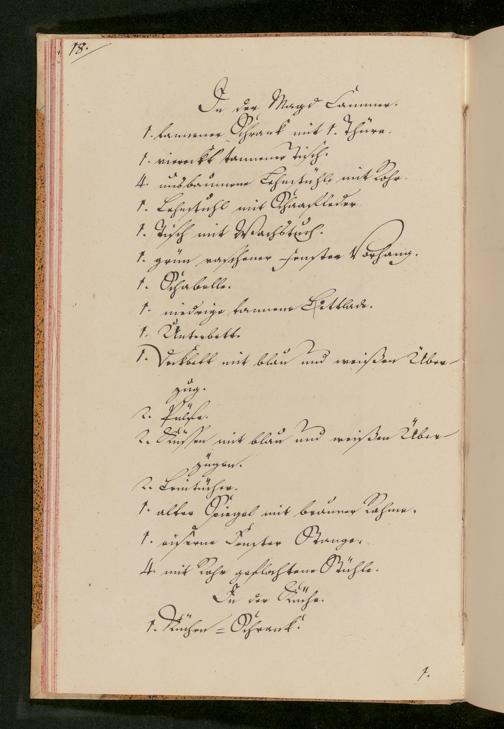 18.
In der Magd Cammer.
1. tannener Schrank mit 1. Thüre.
1. viereckt tannener Tisch.
4. nusbaumene Lehnstühle mit Rohr
1. Lehnstuhl mit Schaafleder
1. Tisch mit Wachstuch.
1. grün raschener Fenster Vorhang.
1. Schabelle.
1. niedrige tannene Bettlade.
1. Unterbett.
1. Deckbett mit blau und weißen Über-
zug.
2. Pülfe.
2. Küßen mit blau und weißen Über-
zügen.
2. Leintücher.
1. alter Spiegel mit brauner Rahme.
1. eiserne Fenster Stange.
4. mit Rohr geflochtene Stühle.
In der Küche.
1. Küchen-Schrank.
1.